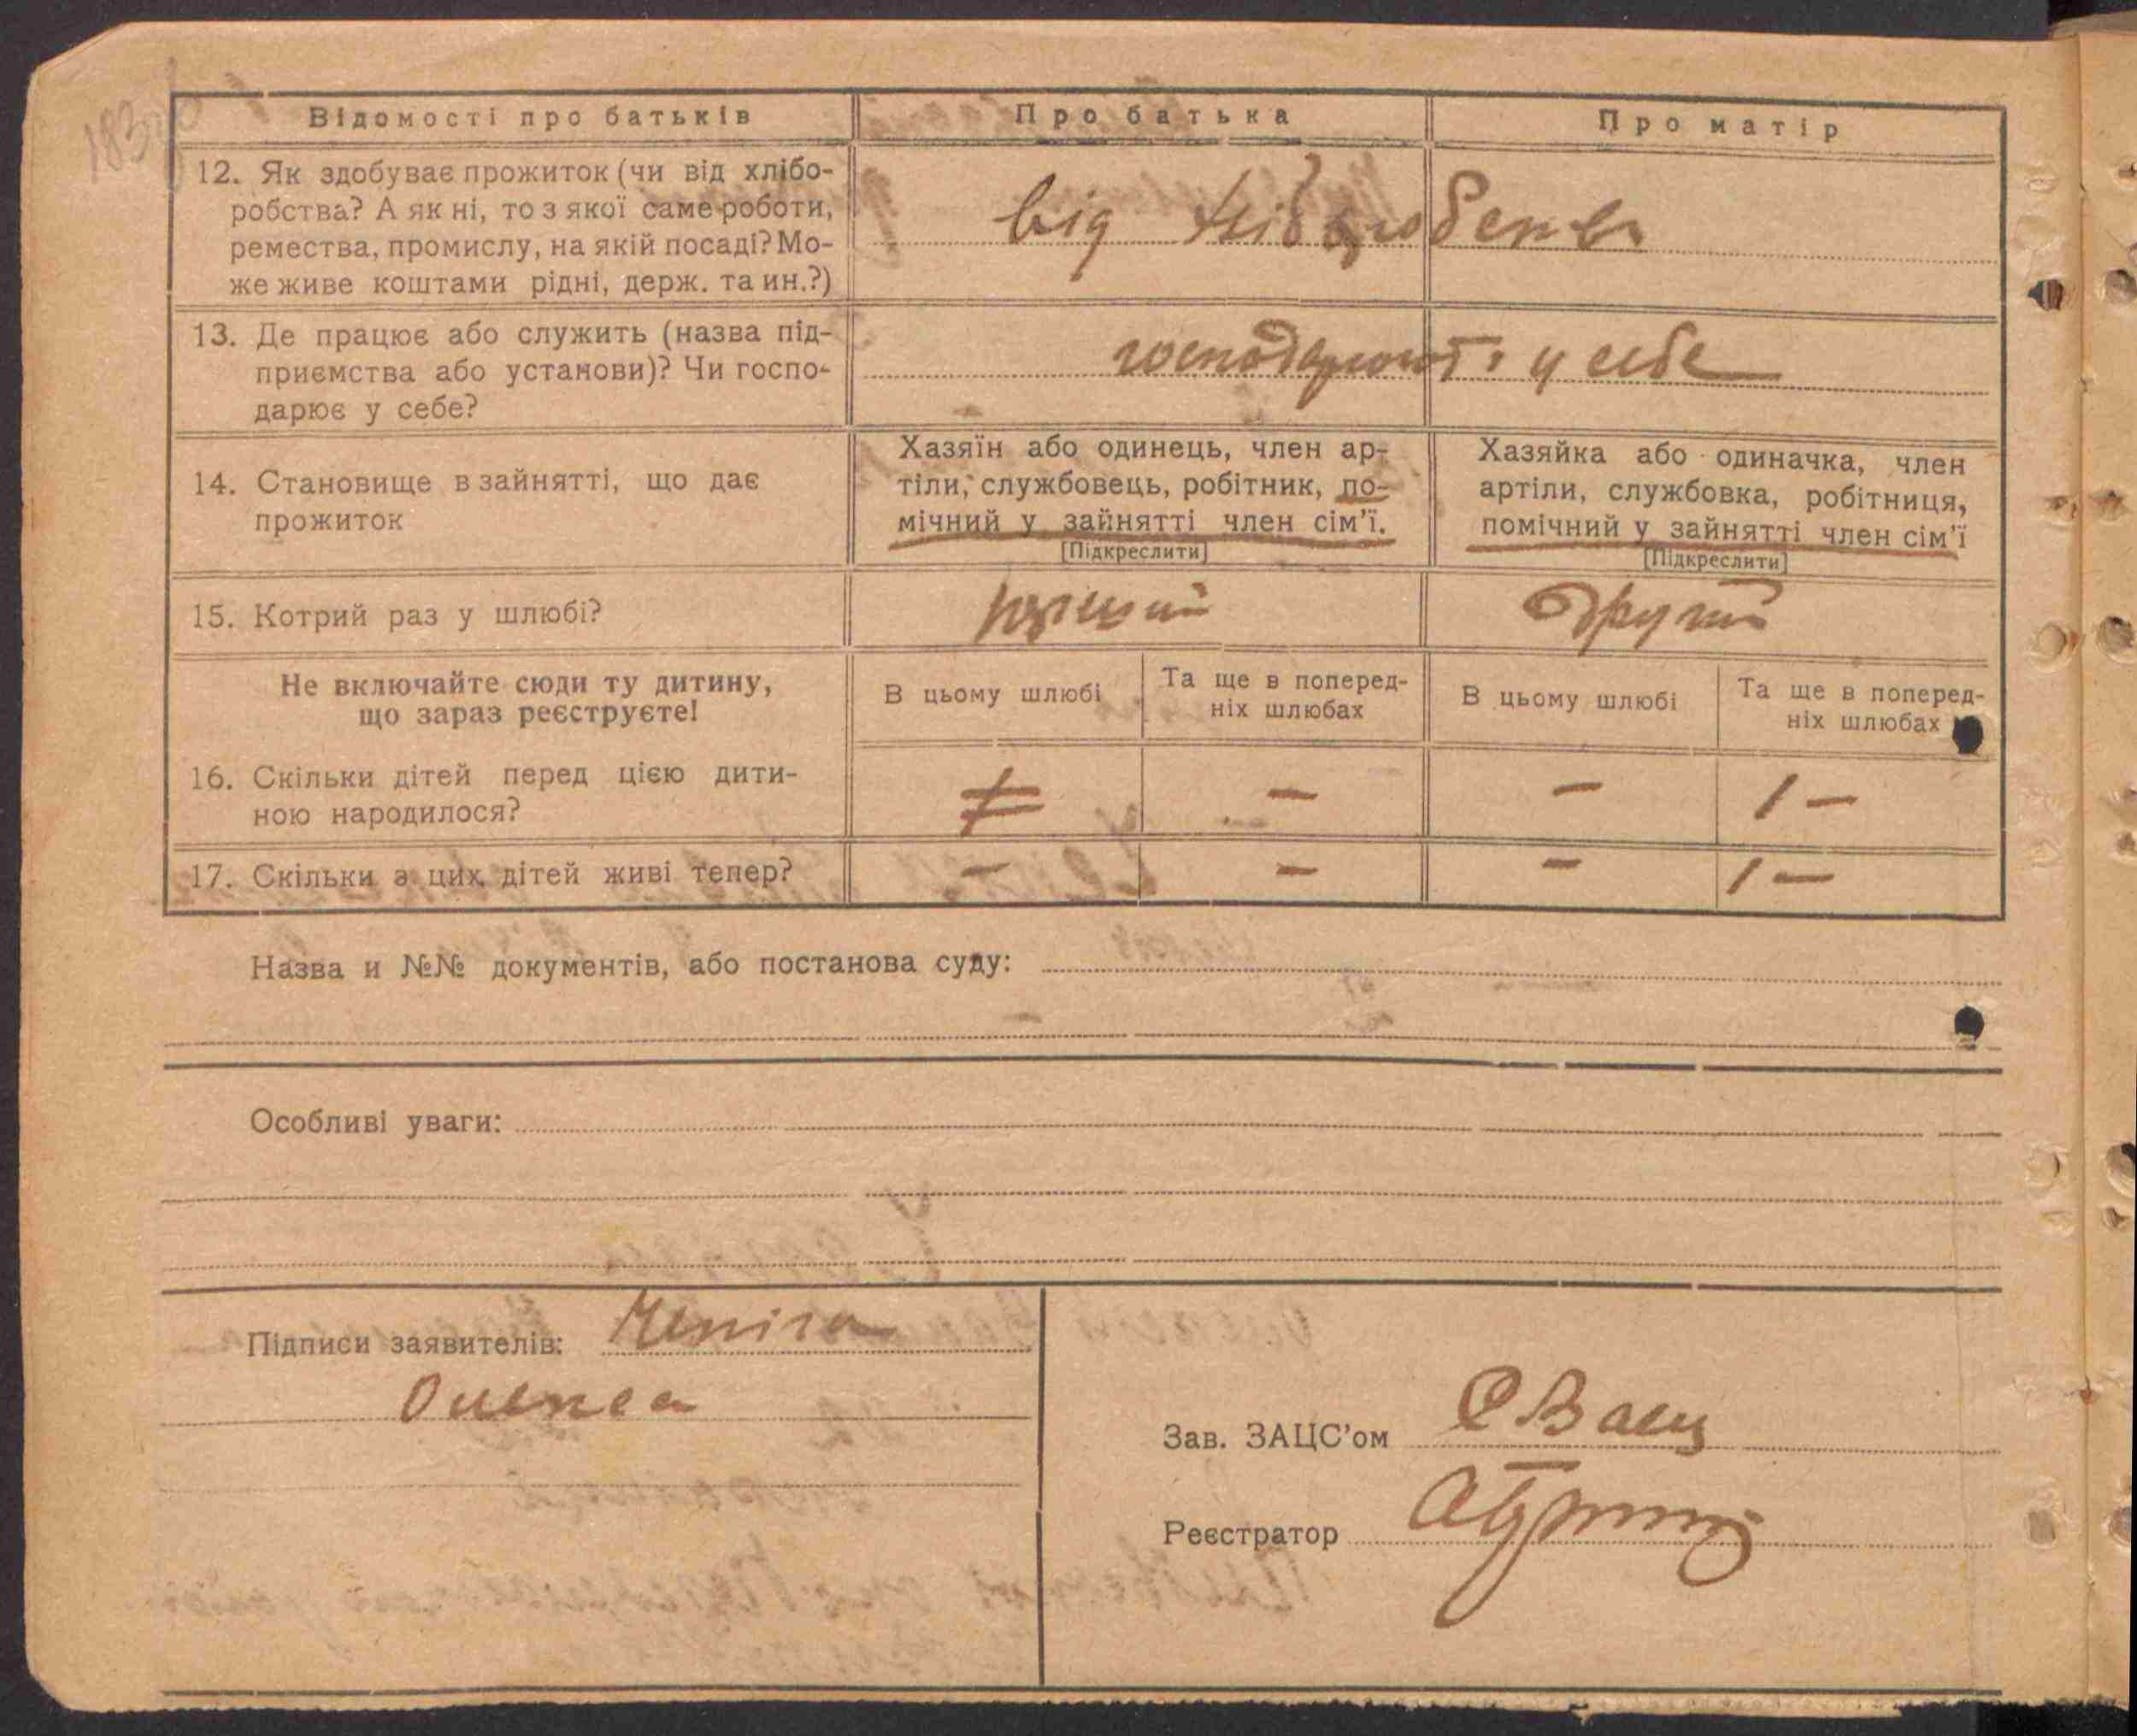 Відомості про батьків
Про батька
Про матір
12. Як здобуває прожиток (чи від хлібо-
робства? А як ні, то з якої саме роботи,
ремества, промислу, на якій посаді? Мо-
же живе коштами рідні, держ. та ин.?)
від хліборобства
13. Де працює або служить (назва під-
приємства або установи)? Чи госпо-
дарює у себе?
господарюют у себе
14. Становище в зайнятті, що дає
прожиток
Хазяїн або одинець, член ар-
тіли, службовець, робітник, по-
мічний у зайнятті член сім'ї.
[Підкреслити]
Хазяйка або одиначка, член
артіли, службовка, робітниця,
помічний у зайнятті член сім'ї
[Підкреслити]
15. Котрий раз у шлюбі?
перший
другий
Не включайте сюди ту дитину,
що зараз реєструєте!
В цьому шлюбі
Та ще в поперед-
ніх шлюбах
В цьому шлюбі
Та ще в поперед-
ніх шлюбах
16. Скільки дітей перед цією дити-
ною народилося?
–
–
1 –
17. Скільки з цих дітей живі тепер?
–
–
–
1 –
Назва и №№ документів, або постанова суду:
Особливі уваги:
Підписи заявителів:
Зав. ЗАЦС'ом
Реєстратор